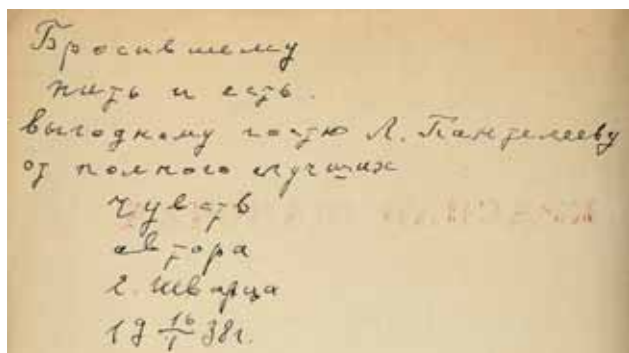 Бросившему
пить и есть.
выгодному гостю Л. Пантелееву
от полного лучших
чувств
автора
Е. Шварца
19 16/I 38г.